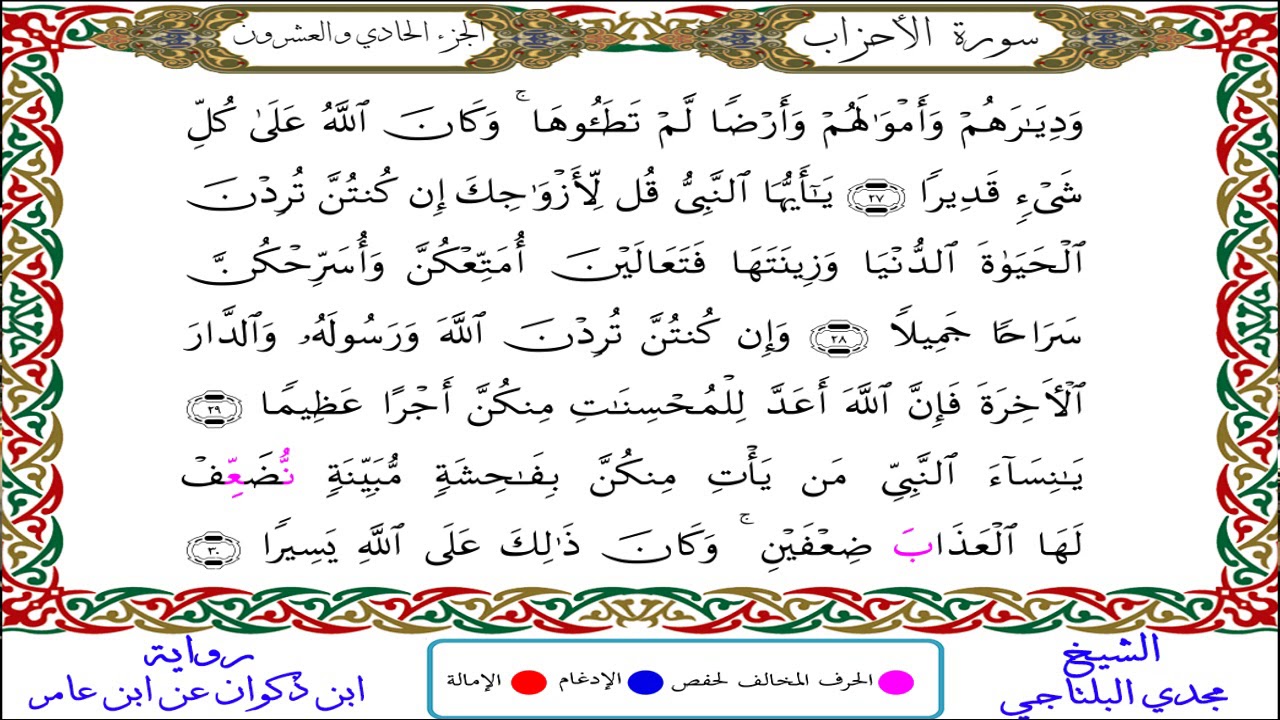 سورة الأحزاب
الجزء الحادي والعشرون
وَدِيَـٰرَهُمْ وَأَمْوَٰلَهُمْ وَأَرْضًا لَّمْ تَطَـُٔوهَا ۚ وَكَانَ ٱللَّهُ عَلَىٰ كُلِّ
شَىْءٍ قَدِيرًا ٢٧ يَـٰٓأَيُّهَا ٱلنَّبِىُّ قُل لِّأَزْوَٰجِكَ إِن كُنتُنَّ تُرِدْنَ
ٱلْحَيَوٰةَ ٱلدُّنْيَا وَزِينَتَهَا فَتَعَالَيْنَ أُمَتِّعْكُنَّ وَأُسَرِّحْكُنَّ
سَرَاحًا جَمِيلًا ٢٨ وَإِن كُنتُنَّ تُرِدْنَ ٱللَّهَ وَرَسُولَهُۥ وَٱلدَّارَ
ٱلْـَٔاخِرَةَ فَإِنَّ ٱللَّهَ أَعَدَّ لِلْمُحْسِنَـٰتِ مِنكُنَّ أَجْرًا عَظِيمًا ٢٩
يَـٰنِسَآءَ ٱلنَّبِىِّ مَن يَأْتِ مِنكُنَّ بِفَـٰحِشَةٍ مُّبَيِّنَةٍ نُّضَعِّفْ
لَهَا ٱلْعَذَابَ ضِعْفَيْنِ ۚ وَكَانَ ذَٰلِكَ عَلَى ٱللَّهِ يَسِيرًا ٣٠
الشيخ
مجدي البلتاجي
الحرف المخالف لحفص الإدغام الإمالة
رواية
ابن ذكوان عن ابن عامر